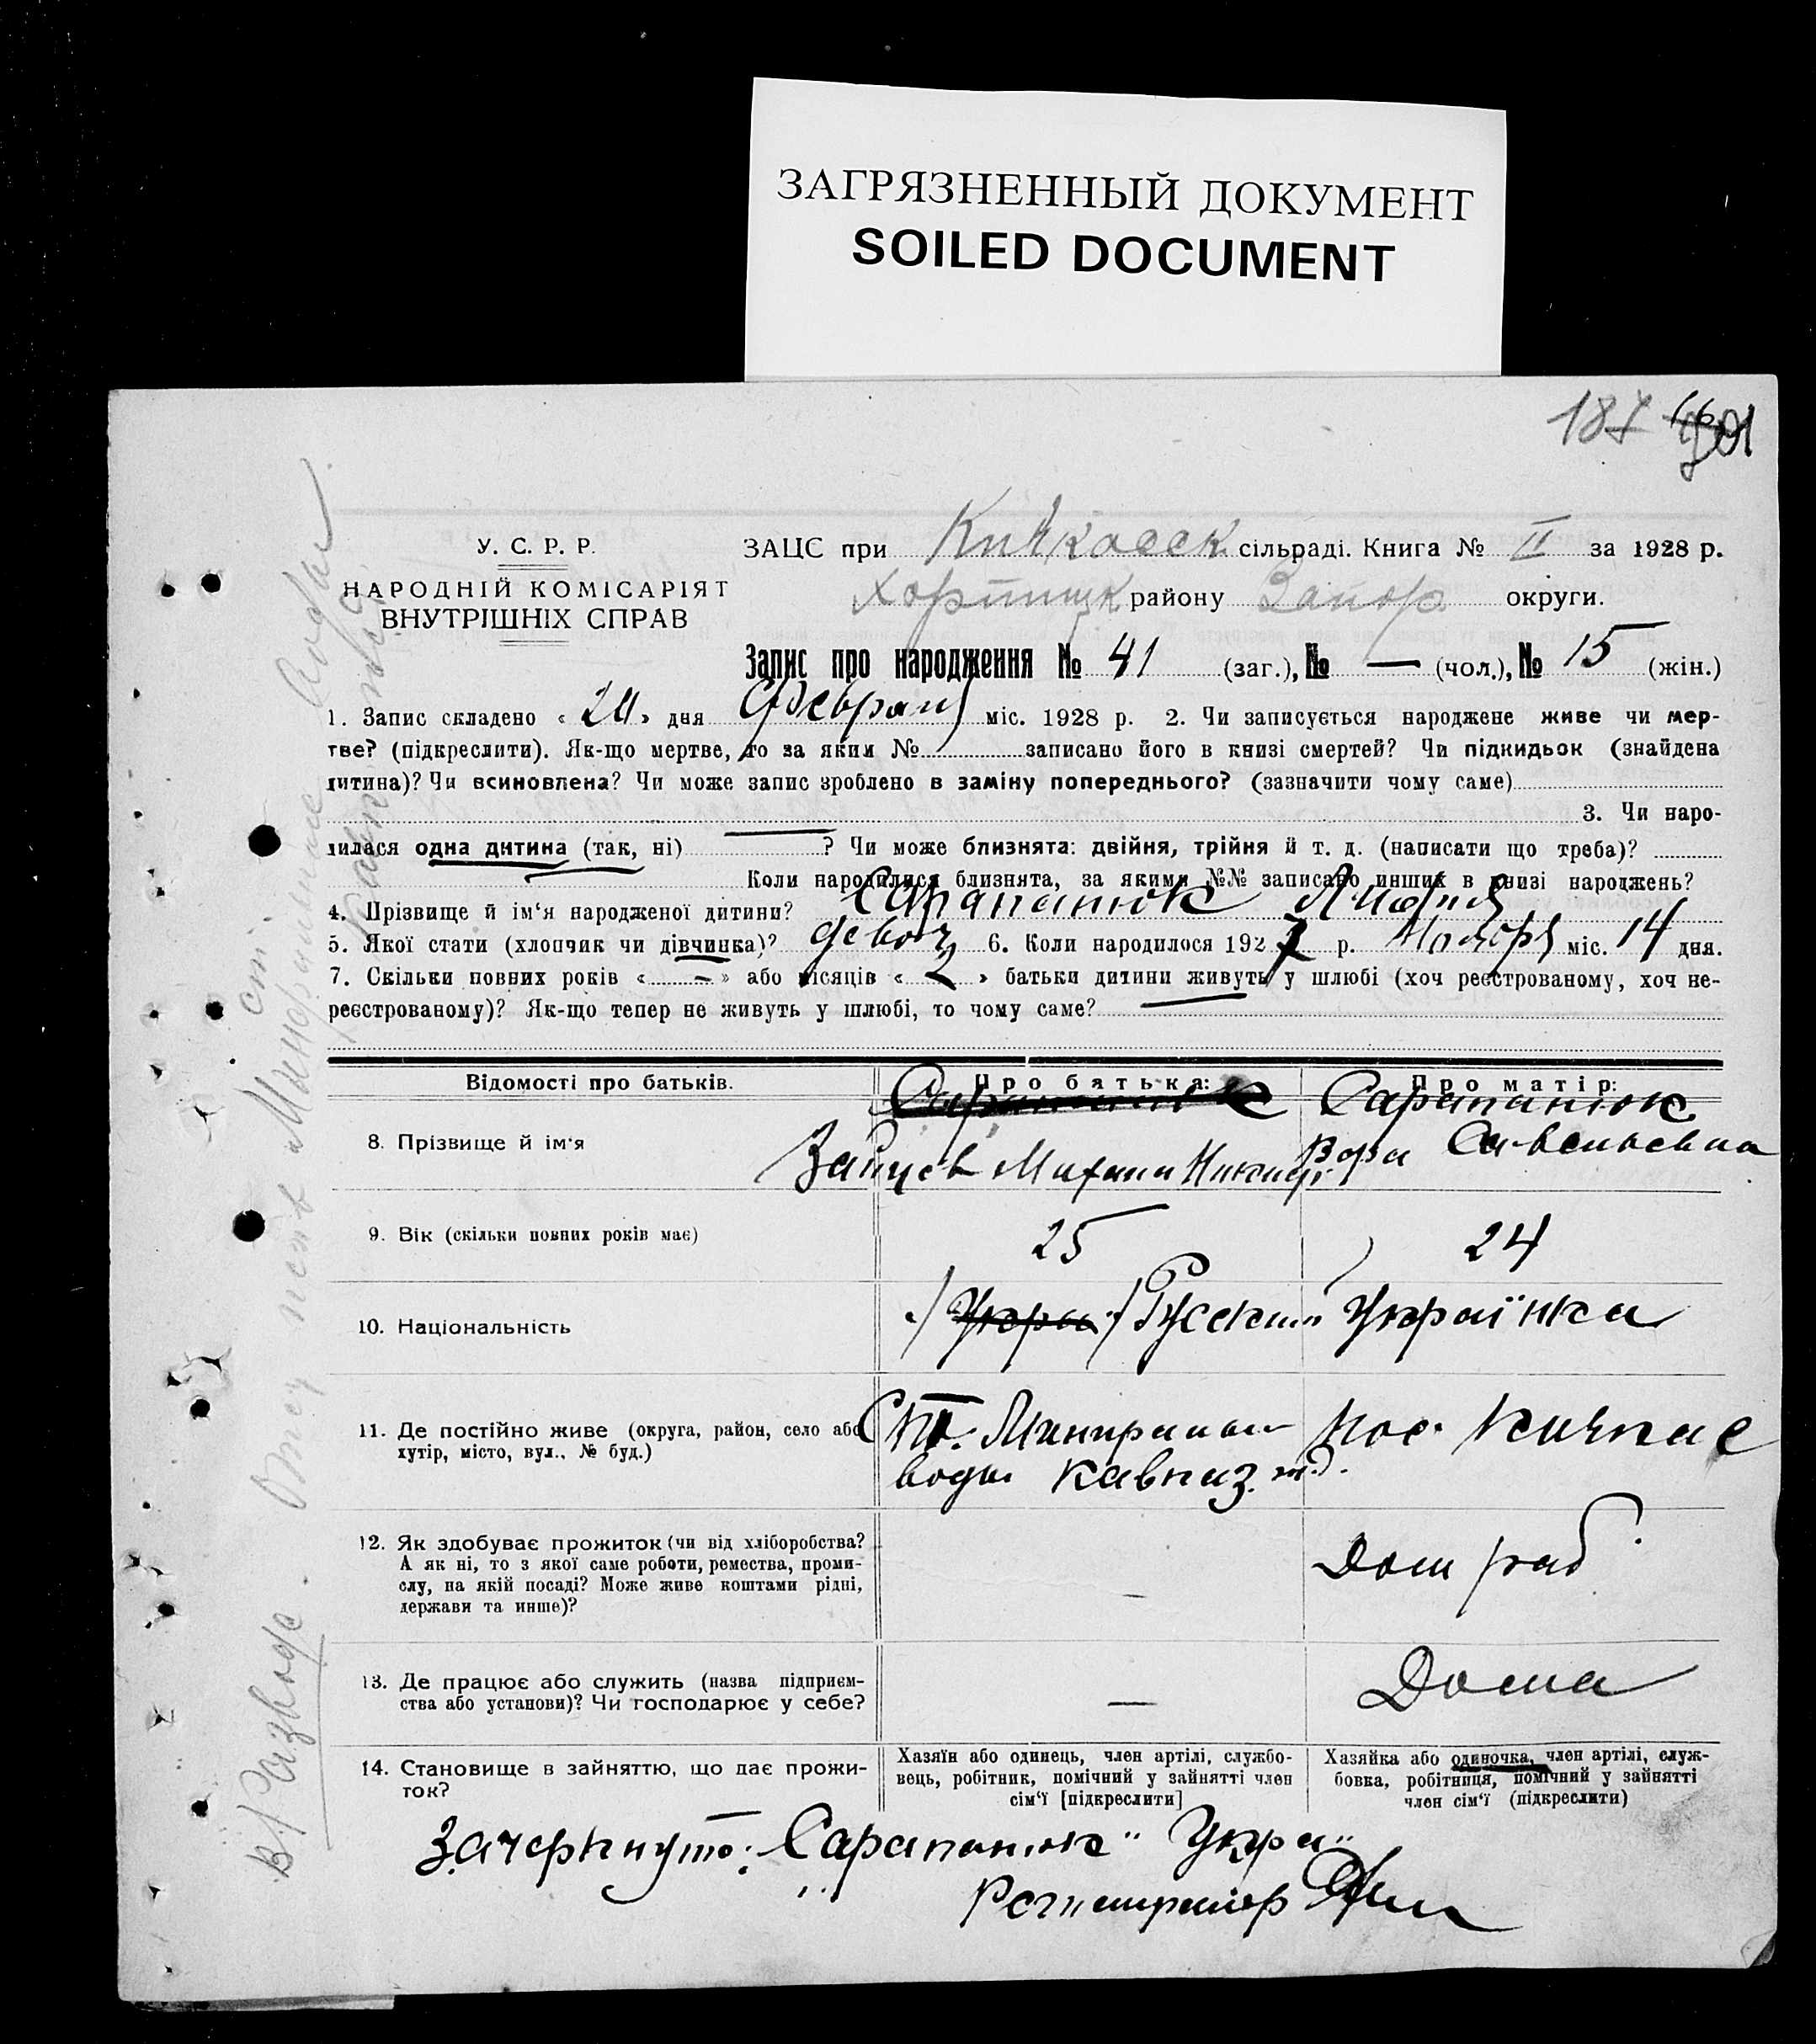 ЗАГРЯЗНЕННЫЙ ДОКУМЕНТ
SOILED DOCUMENT
187
У. С. Р. Р.
НАРОДНІЙ КОМІСАРІЯТ
ВНУТРІШНІХ СПРАВ
ЗАЦС при Кичкасск. сільраді. Книга № II за 1928 р.
Хортицк району Запор. округи.
Запис про народження № 41 (заг.), № — (чол.), № 15 (жін.)
1. Запис складено « » дня Февраля міс. 1928 р. 2. Чи записується народжене живе чи мер-
тве? (підкреслити). Як-що мертве, то за яким № записано його в книзі смертей? Чи підкидьок (знайдена
дитина)? Чи всиновлена? Чи може запис зроблено в заміну попереднього? (зазначити чому саме)
3. Чи наро-
дилася одна дитина (так, ні) — ? Чи може близнята: двійня, трійня й т. д. (написати що треба)?
Коли народилися близнята, за якими №№ записано инших в книзі народжень?
4. Прізвище й ім‘я народженої дитини? Сарапанюк
5. Якої стати (хлопчик чи дівчинка)? девоч 6. Коли народилося 1927 р. Ноября міс. 14 дня.
7. Скільки повних років « — » або місяців « 2 » батьки дитини живуть у шлюбі (хоч реєстрованому, хоч не-
реєстрованому)? Як-що тепер не живуть у шлюбі, то чому саме? —
Відомості про батьків. Про батька: Про матір:
8. Прізвище й ім‘я
Сарапанюк Сарапанюк
Зайцев Михаил Никиф. Вера Савельевна
9. Вік (скільки повних років має) 25 24
10. Національність /Укра/ Русский Українка
11. Де постійно живе (округа, район, село або
хутір, місто, вул., № буд.)
Ст. Минеральн Пос. Кичкас
воды Кавказ. ж.д.
12. Як здобуває прожиток (чи від хліборобства?
А як ні, то з якої саме роботи, ремества, проми-
слу, на якій посаді? Може живе коштами рідні,
держави та инше)?
— Дом раб
13. Де працює або служить (назва підприєм-
ства або установи)? Чи господарює у себе?
— Дома
14. Становище в зайняттю, що дає прожи-
ток?
Хазяїн або одинець, член артілі, службо-
вець, робітник, помічний у зайнятті член
сім‘ї [підкреслити]
Хазяйка або одиночка, член артілі, служ-
бовка, робітниця, помічний у зайнятті
член сім‘ї (підкреслити)
Зачеркнуто: „Сарапанюк“ „Укра“
Регистратор
В/Разводе. Отец
ст. Минеральные Воды